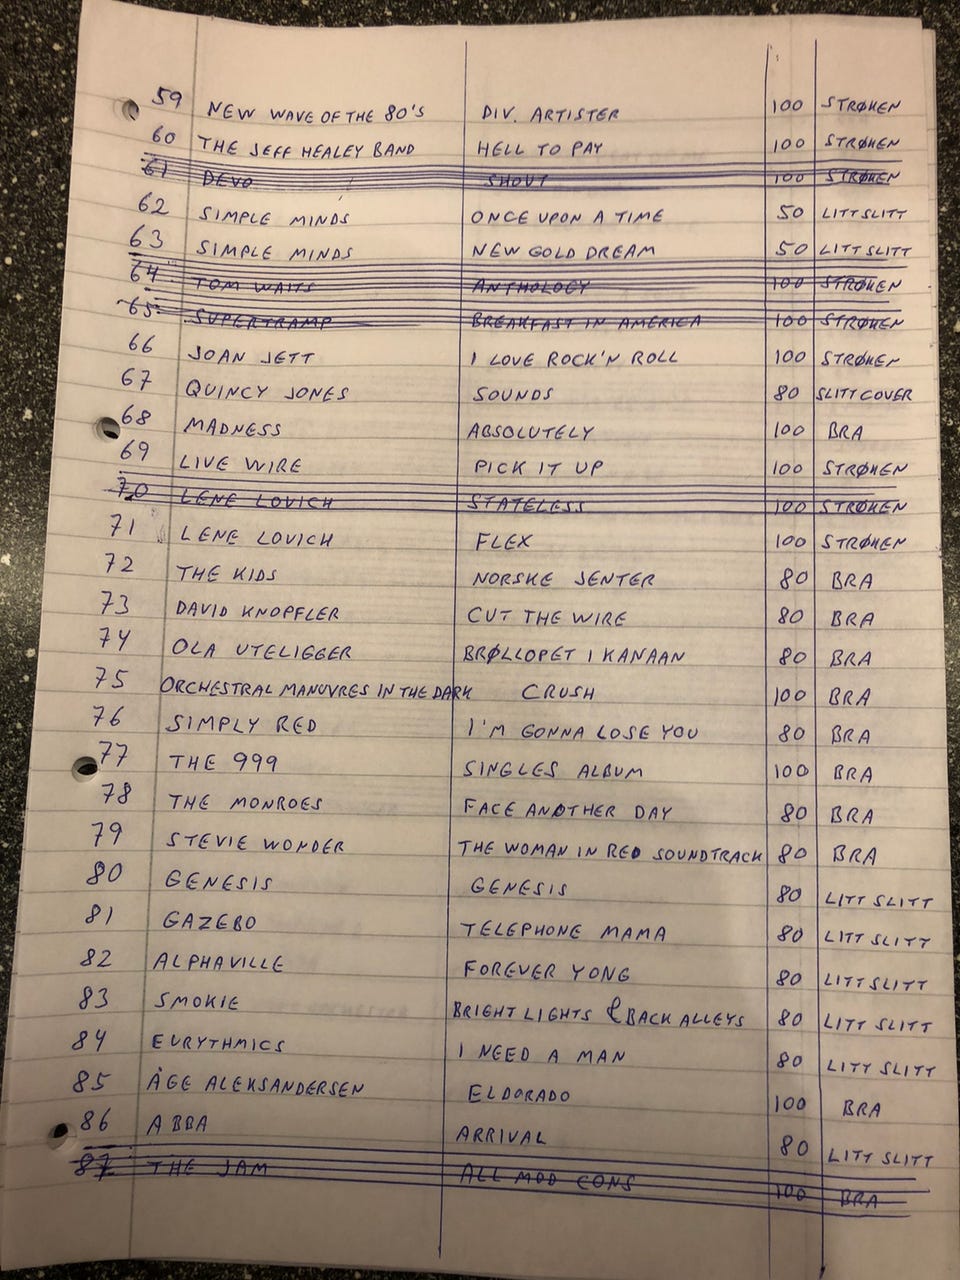 59 NEW WAVE OF THE 80'S DIV. ARTISTER 100 STRØKEN
60 THE JEFF HEALEY BAND HELL TO PAY 100 STRØKEN
61 DEVO SHOUT 100 STRØKEN
62 SIMPLE MINDS ONCE UPON A TIME 50 LITT SLITT
63 SIMPLE MINDS NEW GOLD DREAM 50 LITT SLITT
64 TOM WAITS ANTHOLOGY 100 STRØKEN
65 SUPERTRAMP BREAKFAST IN AMERICA 100 STRØKEN
66 JOAN JETT I LOVE ROCK'N ROLL 100 STRØKEN
67 QUINCY JONES SOUNDS 80 SLITT COVER
68 MADNESS ABSOLUTELY 100 BRA
69 LIVE WIRE PICK IT UP 100 STRØKEN
70 LENE LOVICH STATELESS 100 STRØKEN
71 LENE LOVICH FLEX 100 STRØKEN
72 THE KIDS NORSKE JENTER 80 BRA
73 DAVID KNOPFLER CUT THE WIRE 80 BRA
74 OLA UTELIGGER BRØLLOPET I KANAAN 80 BRA
75 ORCHESTRAL MANUVRES IN THE DARK CRUSH 100 BRA
76 SIMPLY RED I'M GONNA LOSE YOU 80 BRA
77 THE 999 SINGLES ALBUM 100 BRA
78 THE MONROES FACE ANOTHER DAY 80 BRA
79 STEVIE WONDER THE WOMAN IN RED SOUNDTRACK 80 BRA
80 GENESIS GENESIS 80 LITT SLITT
81 GAZEBO TELEPHONE MAMA 80 LITT SLITT
82 ALPHAVILLE FOREVER YONG 80 LITT SLITT
83 SMOKIE BRIGHT LIGHTS & BACK ALLEYS 80 LITT SLITT
84 EURYTHMICS I NEED A MAN 80 LITT SLITT
85 ÅGE ALEKSANDERSEN ELDORADO 100 BRA
86 ABBA ARRIVAL 80 LITT SLITT
87 THE JAM ALL MOD CONS 100 BRA